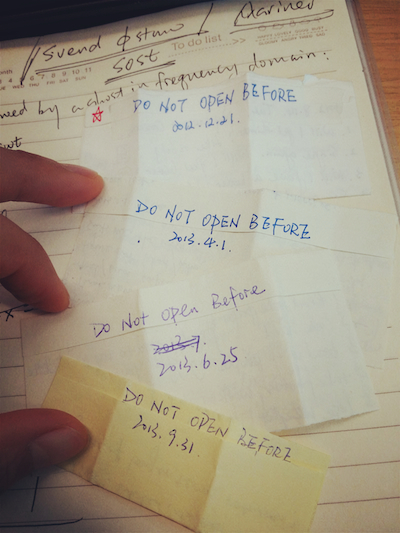 svend
sost
Mariner
To do list
6 7 8 9 10 11
by a ghost in frequency domain:
DO NOT OPEN BEFORE
2012.12.21.
DO NOT OPEN BEFORE
2013.4.1.
Do Not Open Before
2013.7.
2013.6.25
DO NOT OPEN BEFORE
2013.9.31.